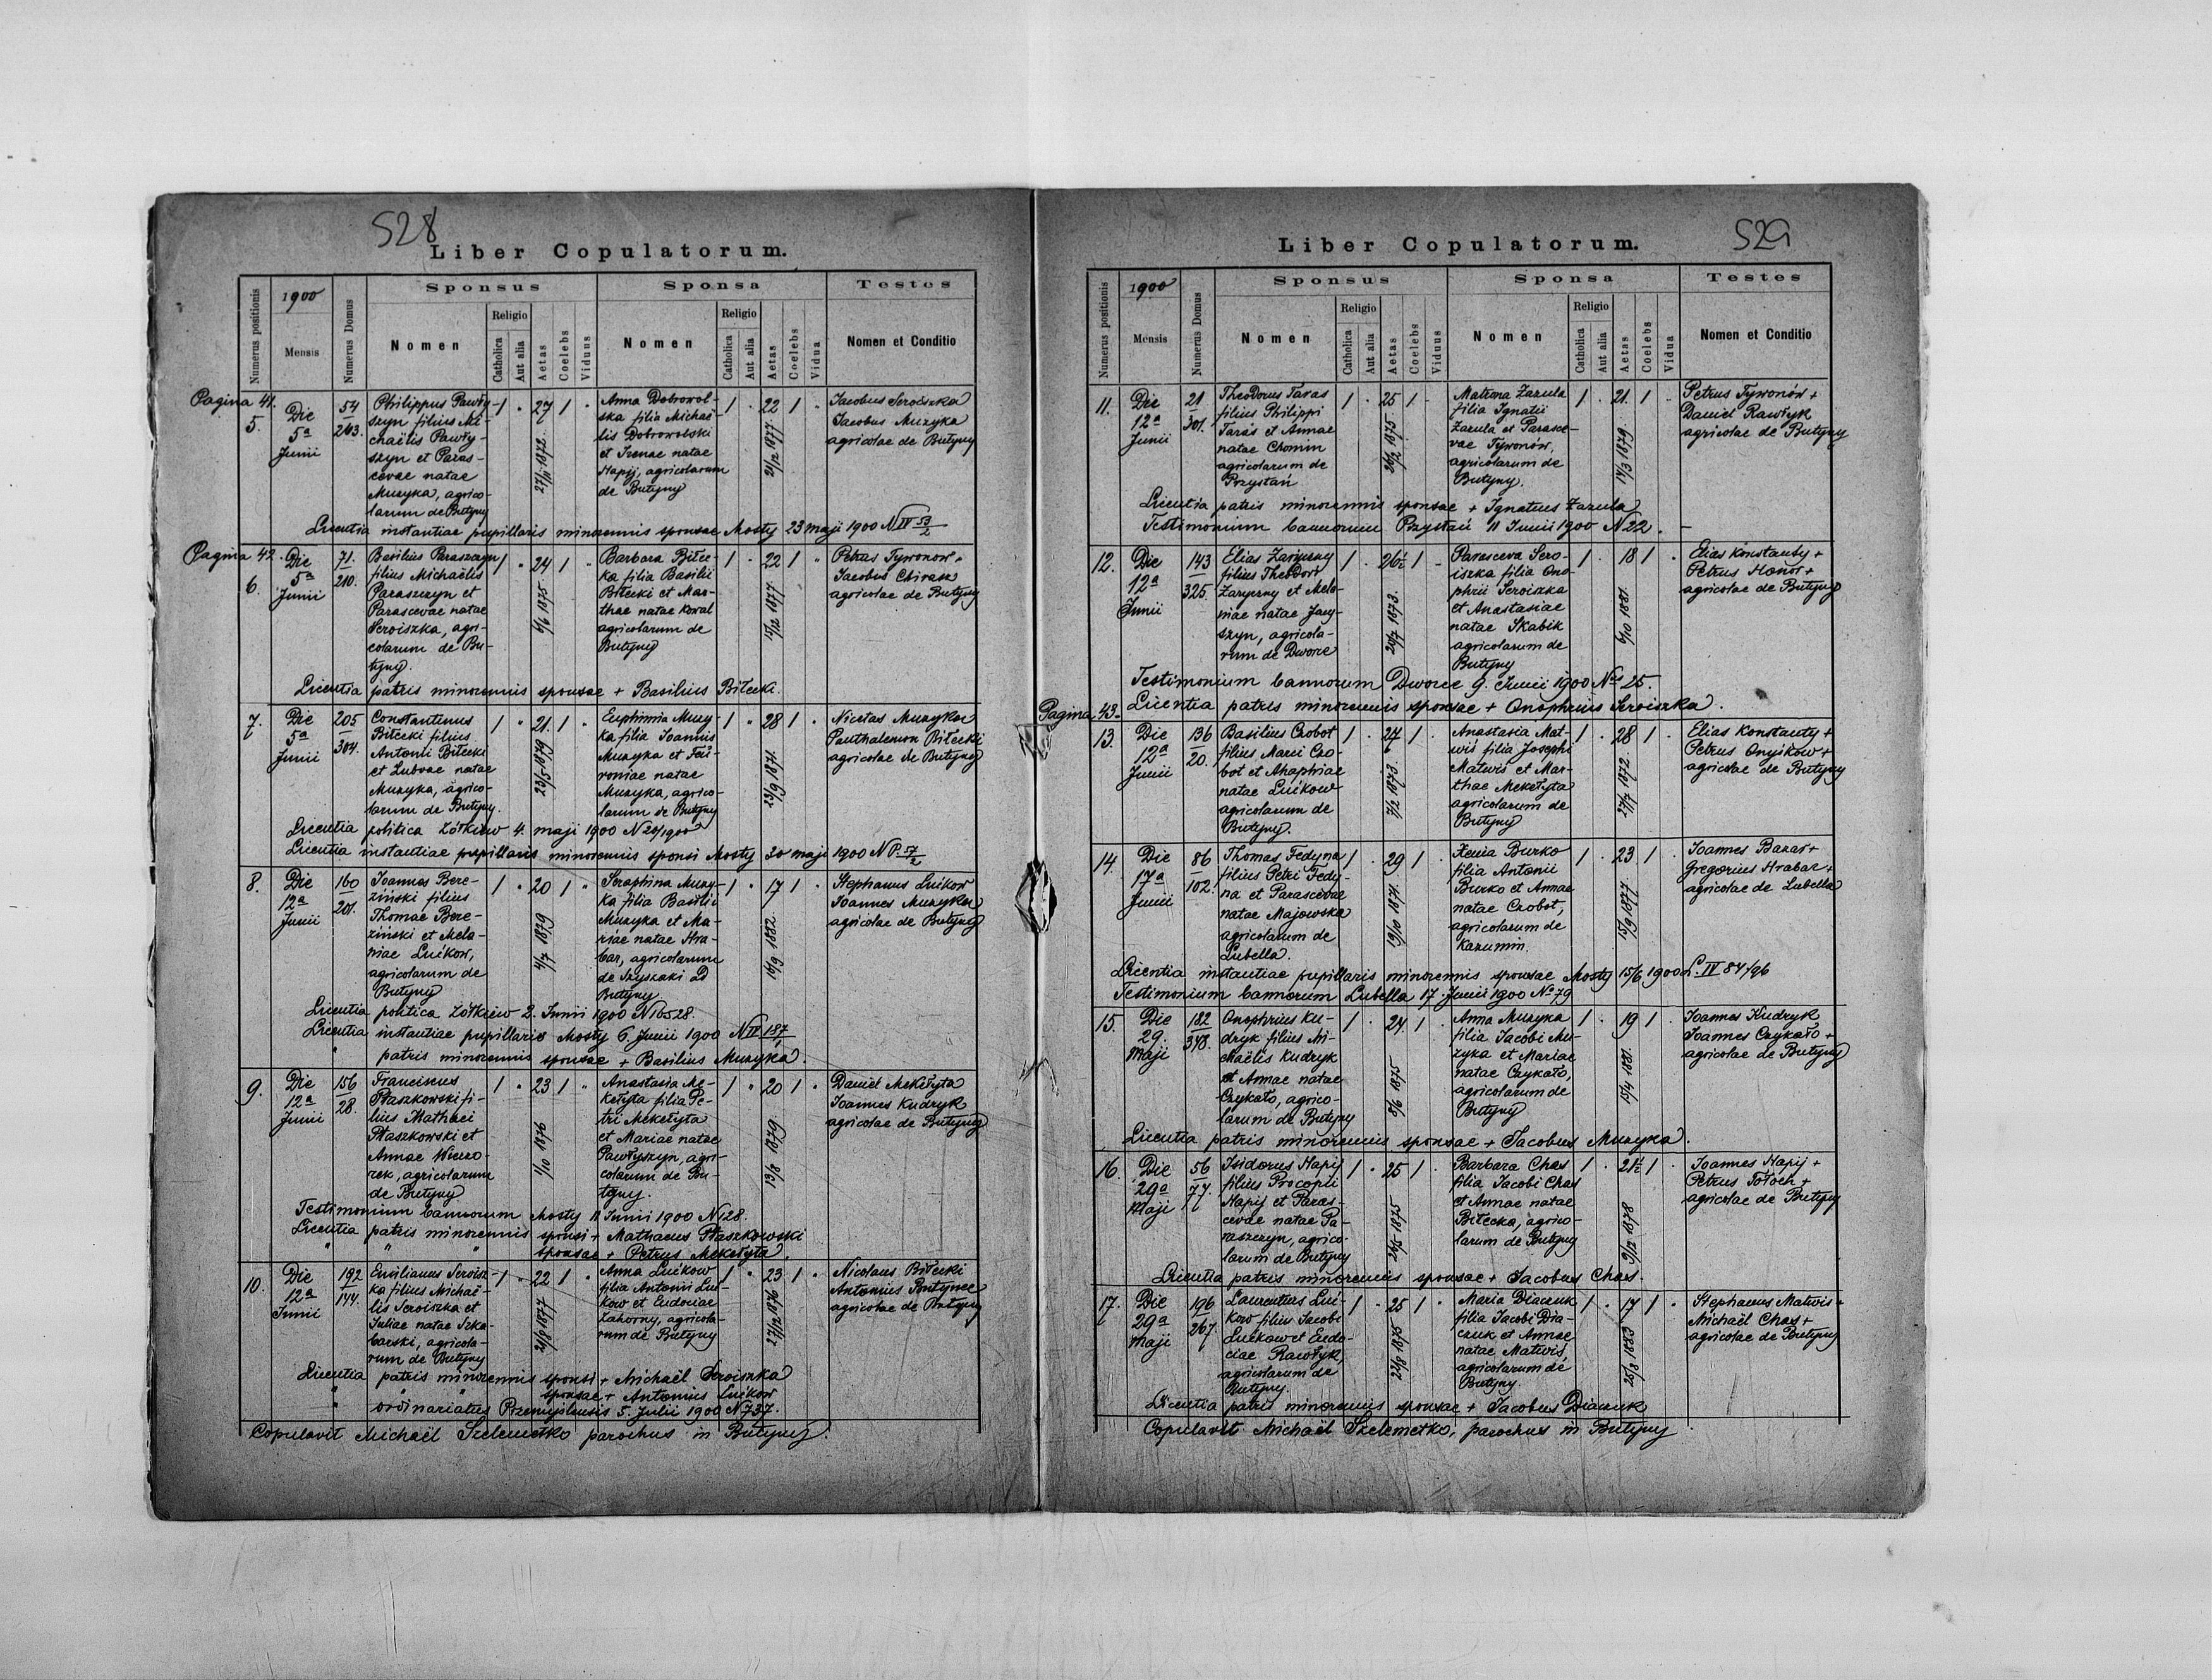 528
Liber Copulatorum.
Numerus positionis
1900
Mensis
Numerus Domus
Sponsus
Nomen
Religio
Catholica
Aut alia
Aetas
Coelebs
Viduus
Sponsa
Nomen
Religio
Catholica
Aut alia
Aetas
Coelebs
Vidua
Testes
Nomen et Conditio
Pagina 41.
5.
Die
5a
Junii
54
243.
Philippus Pawły-
szyn filius Mi-
chaëlis Pawły-
szyn et Paras-
cevae natae
Muzyka, agrico-
larum de Butyny
1 " 27 1 "
27/11 1872
Anna Dobrowol-
ska filia Michaë-
lis Dobrowolski
et Irenae natae
Hapij, agricolarum
de Butyny
1 " 22 1 "
21/12 1877
Jacobus Seroiszka
Jacobus Muzyka
agricolae de Butyny
Licentia instantiae pupillaris minorennis sponsae Mosty 23 maji 1900 N IV 53/2
Pagina 42.
6.
Die
5a
Junii
71.
210.
Basilius Paraszczyn
filius Michaëlis
Paraszczyn et
Parascevae natae
Seroiszka, agri-
colarum de Bu-
tyny.
1 " 24 1 "
6/6 1875
Barbara Biłec-
ka filia Basilii
Biłecki et Mar-
thae natae Kowal
agricolarum de
Butyny
1 " 22 1 "
15/12 1877
Petrus Tywonow +
Jacobus
agricolae de Butyny
Licentia patris minorennis sponsae + Basilius Biłecki.
7.
Die
5a
Junii
205
304.
Constantinus
Biłecki filius
Antonii Biłecki
et Lubvae natae
Muzyka, agrico-
larum de Butyny.
1 " 21. 1 "
23/5 1879
Euphimia Muzy-
ka filia Joannis
Muzyka et Fev-
roniae natae
Muzyka, agrico-
larum de Butyny
1 " 28 1 "
23/9 1871.
Nicetas Muzyka
Panthalemon Biłecki
agricolae de Butyny
Licentia politica Żółkiew 4. maji 1900 N 20/1900
Licentia instantiae pupillaris minorennis sponsi Mosty 30 maji 1900 N P. 57/2
8.
Die
12a
Junii
160
201.
Joannes Bere-
ziński filius
Thomae Bere-
ziński et Mela-
niae Luikow,
agricolarum de
Butyny
1 " 20 1 "
4/7 1879
Seraphina Muzy-
ka filia Basilii
Muzyka et Ma-
riae natae Hra-
bar, agricolarum
de Szyszaki ad
Butyny
1 " 17 1 "
16/9 1882.
Stephanus Luikow
Joannes Muzyka
agricolae de Butyny
Licentia politica Żółkiew 2. Junii 1900 N 16528.
Licentia instantiae pupillaris Mosty 6. Junii 1900 N IV 187/1
" patris minorennis sponsae + Basilius Muzyka.
9.
Die
12a
Junii
156
28.
Franciscus
Ptaszkowski fi-
lius Mathaei
Ptaszkowski et
Annae Wieczo-
rek, agricolarum
de Butyny
1 " 23 1 "
1/10 1876
Anastasia Me-
kełyta filia Pe-
tri Mekełyta
et Mariae natae
Pawłyszyn, agri-
colarum de Bu-
tyny.
1 " 20 1 "
13/8 1879.
Daniel Mekełyta
Joannes Kudryk
agricolae de Butyny
Testimonium bannorum Mosty 11 Junii 1900 N 128.
Licentia patris minorennis sponsi + Mathaeus Ptaszkowski
" " " sponsae + Petrus Mekełyta.
10.
Die
12a
Junii
192
144.
Emilianus Seroisz-
ka filius Michaë-
lis Seroiszka et
Juliae natae Szka-
barski, agricola-
rum de Butyny
1 " 22 1 "
21/8 1877
Anna Luikow
filia Antonii Lui-
kow et Eudociae
Zahorny, agricola-
rum de Butyny
1 " 23. 1 "
27/12 1876
Nicolaus Biłecki
Antonius Bortynec
agricolae de Butyny
Licentia patris minorennis sponsi + Michaël Seroiszka
" " " sponsae + Antonius Luikow
" ordinariatus Przemyślensis 5. Julii 1900 N 737.
Copulavit Michaël Szelemetko parochus in Butyny.
529
Liber Copulatorum.
Numerus positionis
1900
Mensis
Numerus Domus
Sponsus
Nomen
Religio
Catholica
Aut alia
Aetas
Coelebs
Viduus
Sponsa
Nomen
Religio
Catholica
Aut alia
Aetas
Coelebs
Vidua
Testes
Nomen et Conditio
11.
Die
12a
Junii
21
301.
Theodorus Taras
filius Philippi
Taras et Annae
natae Chomin
agricolarum de
Przystań
1 . 25 1 .
26/2 1875
Matrona Zazula
filia Ignatii
Zazula et Parasce-
vae Tywonów,
agricolarum de
Butyny.
1 . 21. 1 .
14/3 1879.
Petrus Tywonów +
Daniel Rawłyk
agricolae de Butyny
Licentia patris minorennis sponsae + Ignatius Zazula
Testimonium bannorum Przystań 11 Junii 1900 N 22. -
12.
Die
12a
Junii
143
325.
Elias Zaryczny
filius Theodori
Zaryczny et Mela-
niae natae Jacy-
szyn, agricola-
rum de Dworce
1 . 26½ 1 .
20/7 1873.
Parasceva Sero-
iszka filia Ono-
phrii Seroiszka
et Anastasiae
natae Skabik
agricolarum de
Butyny
1 . 18 1 .
6/10 1881.
Elias Konstanty +
Petrus Honor +
agricolae de Butyny
Testimonium bannorum Dworce 9. Junii 1900 No 25.
Licentia patris minorennis sponsae + Onophrius Seroiszka.
Pagina 43.
13.
Die
12a
Junii
136
20.
Basilius Czobot
filius Marci Czo-
bot et Ahaphiae
natae Luikow
agricolarum de
Butyny.
1 . 27 1 .
7/2 1873.
Anastasia Mat-
wis filia Josephi
Matwis et Mar-
thae Mekełyta
agricolarum de
Butyny
1 . 28 1 .
27/7 1872.
Elias Konstanty +
Petrus Onyskow +
agricolae de Butyny
14.
Die
17a
Junii
86
102.
Thomas Fedyna
filius Petri Fedy-
na et Parascevae
natae Majowska
agricolarum de
Lubella.
1 . 29 1 .
19/10 1871.
Xenia Burko
filia Antonii
Burko et Annae
natae Czobot,
agricolarum de
Kazumin.
1 . 23 1 .
15/9 1877.
Joannes Bazar +
Gregorius Hrabar +
agricolae de Lubella
Licentia instantiae pupillaris minorennis sponsae Mosty 15/6 1900 L. IV 84/96
Testimonium bannorum Lubella 17. Junii 1900 No 79
15.
Die
29.
Maji
182
348.
Onophrius Ku-
dryk filius Mi-
chaëlis Kudryk
et Annae natae
Czykało, agrico-
larum de Butyny
1 . 24. 1 .
8/6 1875
Anna Muzyka
filia Jacobi Mu-
zyka et Mariae
natae Czykało,
agricolarum de
Butyny
1 . 19 1 .
15/4 1881.
Joannes Kudryk
Joannes Czykało +
agricolae de Butyny
Licentia patris minorennis sponsae + Jacobus Muzyka.
16.
Die
29a
Maji
56
77.
Isidorus Hapij
filius Procopii
Hapij et Paras-
cevae natae Pa-
raszczyn, agrico-
larum de Butyny
1 . 25 1 .
26/5 1875
Barbara Chas
filia Jacobi Chas
et Annae natae
Biłecka, agrico-
larum de Butyny
1 . 21½ 1 .
9/12 1878
Joannes Hapij +
Petrus Tołoch +
agricolae de Butyny
Licentia patris minorennis sponsae + Jacobus Chas.
17.
Die
29a
Maji
196
267.
Laurentius Lui-
kow filius Jacobi
Luikow et Eudo-
ciae Rawłyk,
agricolarum de
Butyny.
1 . 25 1 .
22/8 1875
Maria Diaczuk
filia Jacobi Dia-
czuk et Annae
natae Matwis,
agricolarum de
Butyny.
1 . 17 1 .
25/8 1883
Stephanus Matwis +
Michaël Chas +
agricolae de Butyny
Licentia patris minorennis sponsae + Jacobus Diaczuk
Copulavit Michaël Szelemetko, parochus in Butyny